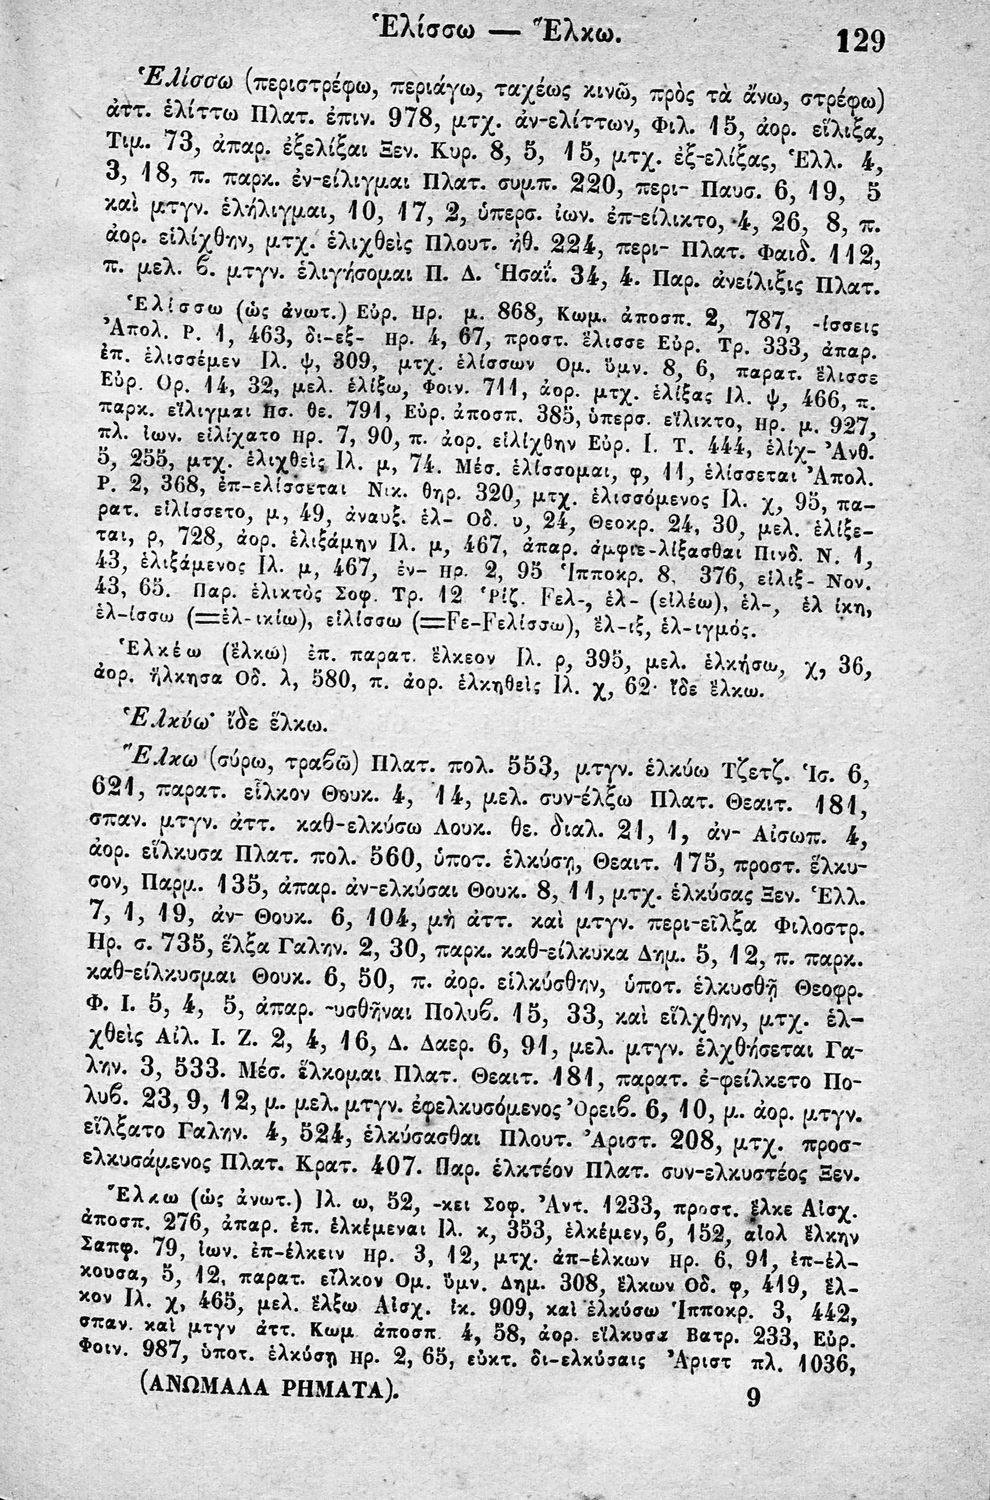 Ἑλίσσω — Ἕλκω.
129
Ἑλίσσω (περιστρέφω, περιάγω, ταχέως κινῶ, πρὸς τὰ ἄνω, στρέφω)
ἀττ. ἑλίττω Πλατ. ἐπιν. 978, μτχ. ἀν-ελίττων, Φιλ. 15, ἀορ. εἵλιξα,
Τιμ. 73, ἀπαρ. ἐξελίξαι Ξεν. Κυρ. 8, 5, 15, μτχ. ἐξ-ελίξας, Ἑλλ. 4,
3, 18, π. παρκ. ἐν-είλιγμαι Πλατ. συμπ. 220, περι- Παυσ. 6, 19, 5
καὶ μτγν. ἑλήλιγμαι, 10, 17, 2, ὑπερσ. ἰων. ἐπ-είλικτο, 4, 26, 8, π.
ἀορ. εἱλίχθην, μτχ. ἑλιχθεὶς Πλουτ. ἠθ. 224, περι- Πλατ. Φαιδ. 112,
π. μελ. ϐ. μτγν. ἑλιγήσομαι Π. Δ. Ἡσαΐ. 34, 4. Παρ. ἀνείλιξις Πλατ.
Ἑλίσσω (ὡς ἀνωτ.) Εὐρ. Ηρ. μ. 868, Κωμ. ἀποσπ. 2, 787, -ίσσεις
Ἀπολ. Ρ. 1, 463, δι-εξ- Ηρ. 4, 67, προστ. ἕλισσε Εὐρ. Τρ. 333, ἀπαρ.
ἐπ. ἑλισσέμεν Ιλ. ψ, 309, μτχ. ἑλίσσων Ομ. ὕμν. 8, 6, παρατ. ἕλισσε
Εὐρ. Ορ. 14, 32, μελ. ἑλίξω, Φοιν. 711, ἀορ. μτχ. ἑλίξας Ιλ. ψ, 466, π.
παρκ. εἵλιγμαι Ησ. θε. 791, Εὐρ. ἀποσπ. 385, ὑπερσ. εἵλικτο, Ηρ. μ. 927,
πλ. ἰων. εἱλίχατο Ηρ. 7, 90, π. ἀορ. εἱλίχθην Εὐρ. Ι. Τ. 444, ἑλίχ- Ἀνθ.
5, 255, μτχ. ἑλιχθεὶς Ιλ. μ, 74. Μέσ. ἑλίσσομαι, φ, 11, ἑλίσσεται Ἀπολ.
Ρ. 2, 368, ἐπ-ελίσσεται Νικ. θηρ. 320, μτχ. ἑλισσόμενος Ιλ. χ, 95, πα-
ρατ. εἱλίσσετο, μ, 49, ἀναυξ. ἑλ- Οδ. υ, 24, Θεοκρ. 24, 30, μελ. ἑλίξε-
ται, ρ, 728, ἀορ. ἑλιξάμην Ιλ. μ, 467, ἀπαρ. ἀμφιε-λίξασθαι Πινδ. Ν. 1,
43, ἑλιξάμενος Ιλ. μ, 467, ἐν- Ηρ. 2, 95 Ἱπποκρ. 8, 376, εἱλιξ- Νον.
43, 65. Παρ. ἑλικτὸς Σοφ. Τρ. 12 Ῥίζ. Ϝελ-, ἑλ- (εἱλέω), ἑλ-, ἑλ ίκη,
ἑλ-ίσσω (=ἑλ-ικίω), εἱλίσσω (=Ϝε-Ϝελίσσω), ἕλ-ιξ, ἑλ-ιγμός.
Ἑλκέω (ἕλκω) ἐπ. παρατ. ἕλκεον Ιλ. ρ, 395, μελ. ἑλκήσω, χ, 36,
ἀορ. ἥλκησα Οδ. λ, 580, π. ἀορ. ἑλκηθεὶς Ιλ. χ, 62· ἴδε ἕλκω.
Ἑλκύω· ἴδε ἕλκω.
Ἕλκω (σύρω, τραϐῶ) Πλατ. πολ. 553, μτγν. ἑλκύω Τζετζ. Ἱσ. 6,
621, παρατ. εἷλκον Θουκ. 4, 14, μελ. συν-έλξω Πλατ. Θεαιτ. 181,
σπαν. μτγν. ἀττ. καθ-ελκύσω Λουκ. θε. διαλ. 21, 1, ἀν- Αἰσωπ. 4,
ἀορ. εἵλκυσα Πλατ. πολ. 560, ὑποτ. ἑλκύσῃ, Θεαιτ. 175, προστ. ἕλκυ-
σον, Παρμ. 135, ἀπαρ. ἀν-ελκύσαι Θουκ. 8, 11, μτχ. ἑλκύσας Ξεν. Ἑλλ.
7, 1, 19, ἀν- Θουκ. 6, 104, μὴ ἀττ. καὶ μτγν. περι-εῖλξα Φιλοστρ.
Ηρ. σ. 735, ἕλξα Γαλην. 2, 30, παρκ. καθ-είλκυκα Δημ. 5, 12, π. παρκ.
καθ-είλκυσμαι Θουκ. 6, 50, π. ἀορ. εἱλκύσθην, ὑποτ. ἑλκυσθῇ Θεοφρ.
Φ. Ι. 5, 4, 5, ἀπαρ. -υσθῆναι Πολυϐ. 15, 33, καὶ εἵλχθην, μτχ. ἑλ-
χθεὶς Αἰλ. Ι. Ζ. 2, 4, 16, Δ. Λαερ. 6, 91, μελ. μτγν. ἑλχθήσεται Γα-
λην. 3, 533. Μέσ. ἕλκομαι Πλατ. Θεαιτ. 181, παρατ. ἐ-φείλκετο Πο-
λυϐ. 23, 9, 12, μ. μελ. μτγν. ἐφελκυσόμενος Ὀρειϐ. 6, 10, μ. ἀορ. μτγν.
εἵλξατο Γαλην. 4, 524, ἑλκύσασθαι Πλουτ. Ἀριστ. 208, μτχ. προσ-
ελκυσάμενος Πλατ. Κρατ. 407. Παρ. ἑλκτέον Πλατ. συν-ελκυστέος Ξεν.
Ἕλκω (ὡς ἀνωτ.) Ιλ. ω, 52, -κει Σοφ. Ἀντ. 1233, προστ. ἕλκε Αἰσχ.
ἀποσπ. 276, ἀπαρ. ἐπ. ἑλκέμεναι Ιλ. κ, 353, ἑλκέμεν, ϐ, 152, αἰολ ἕλκην
Σαπφ. 79, ἰων. ἐπ-έλκειν Ηρ. 3, 12, μτχ. ἀπ-έλκων Ηρ. 6, 91, ἐπ-έλ-
κουσα, 5, 12, παρατ. εἷλκον Ομ. ὕμν. Δημ. 308, ἕλκων Οδ. φ, 419, ἕλ-
κον Ιλ. χ, 465, μελ. ἕλξω Αἰσχ. ἱκ. 909, καὶ ἑλκύσω Ἱπποκρ. 3, 442,
σπαν. καὶ μτγν ἀττ. Κωμ ἀποσπ. 4, 58, ἀορ. εἵλκυσα Βατρ. 233, Εὐρ.
Φοιν. 987, ὑποτ. ἑλκύσῃ Ηρ. 2, 65, εὐκτ. δι-ελκύσαις Ἀριστ πλ. 1036,
(ΑΝΩΜΑΛΑ ΡΗΜΑΤΑ).
9